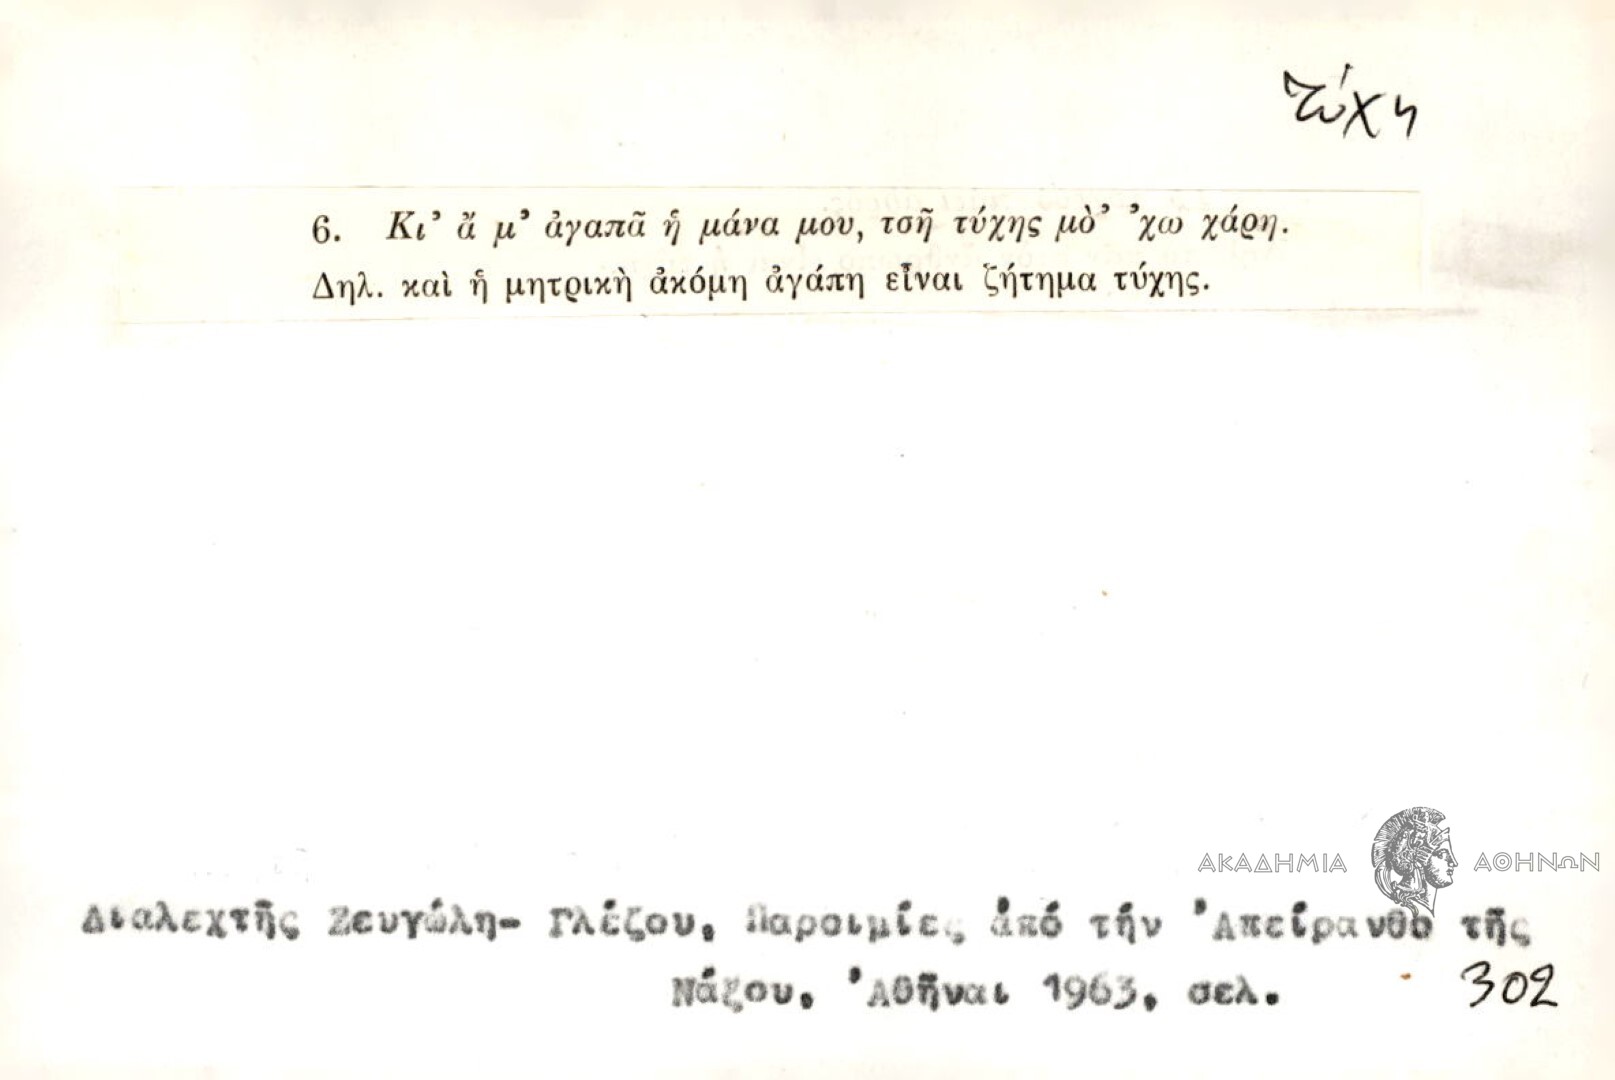 τύχη
6. Κι’ ἄ μ’ ἀγαπᾶ ἡ μάνα μου, τσῆ τύχης μὸ’ ’χω χάρη.
Δηλ. καὶ ἡ μητρικὴ ἀκόμη ἀγάπη εἶναι ζήτημα τύχης.
ΑΚΑΔΗΜΙΑ ΑΘΗΝΩΝ
Διαλεχτῆς Ζευγώλη- Γλέζου, Παροιμίες ἀπό τήν ’Απείρανθο τῆς
Νάξου, ’Αθῆναι 1963, σελ. 302